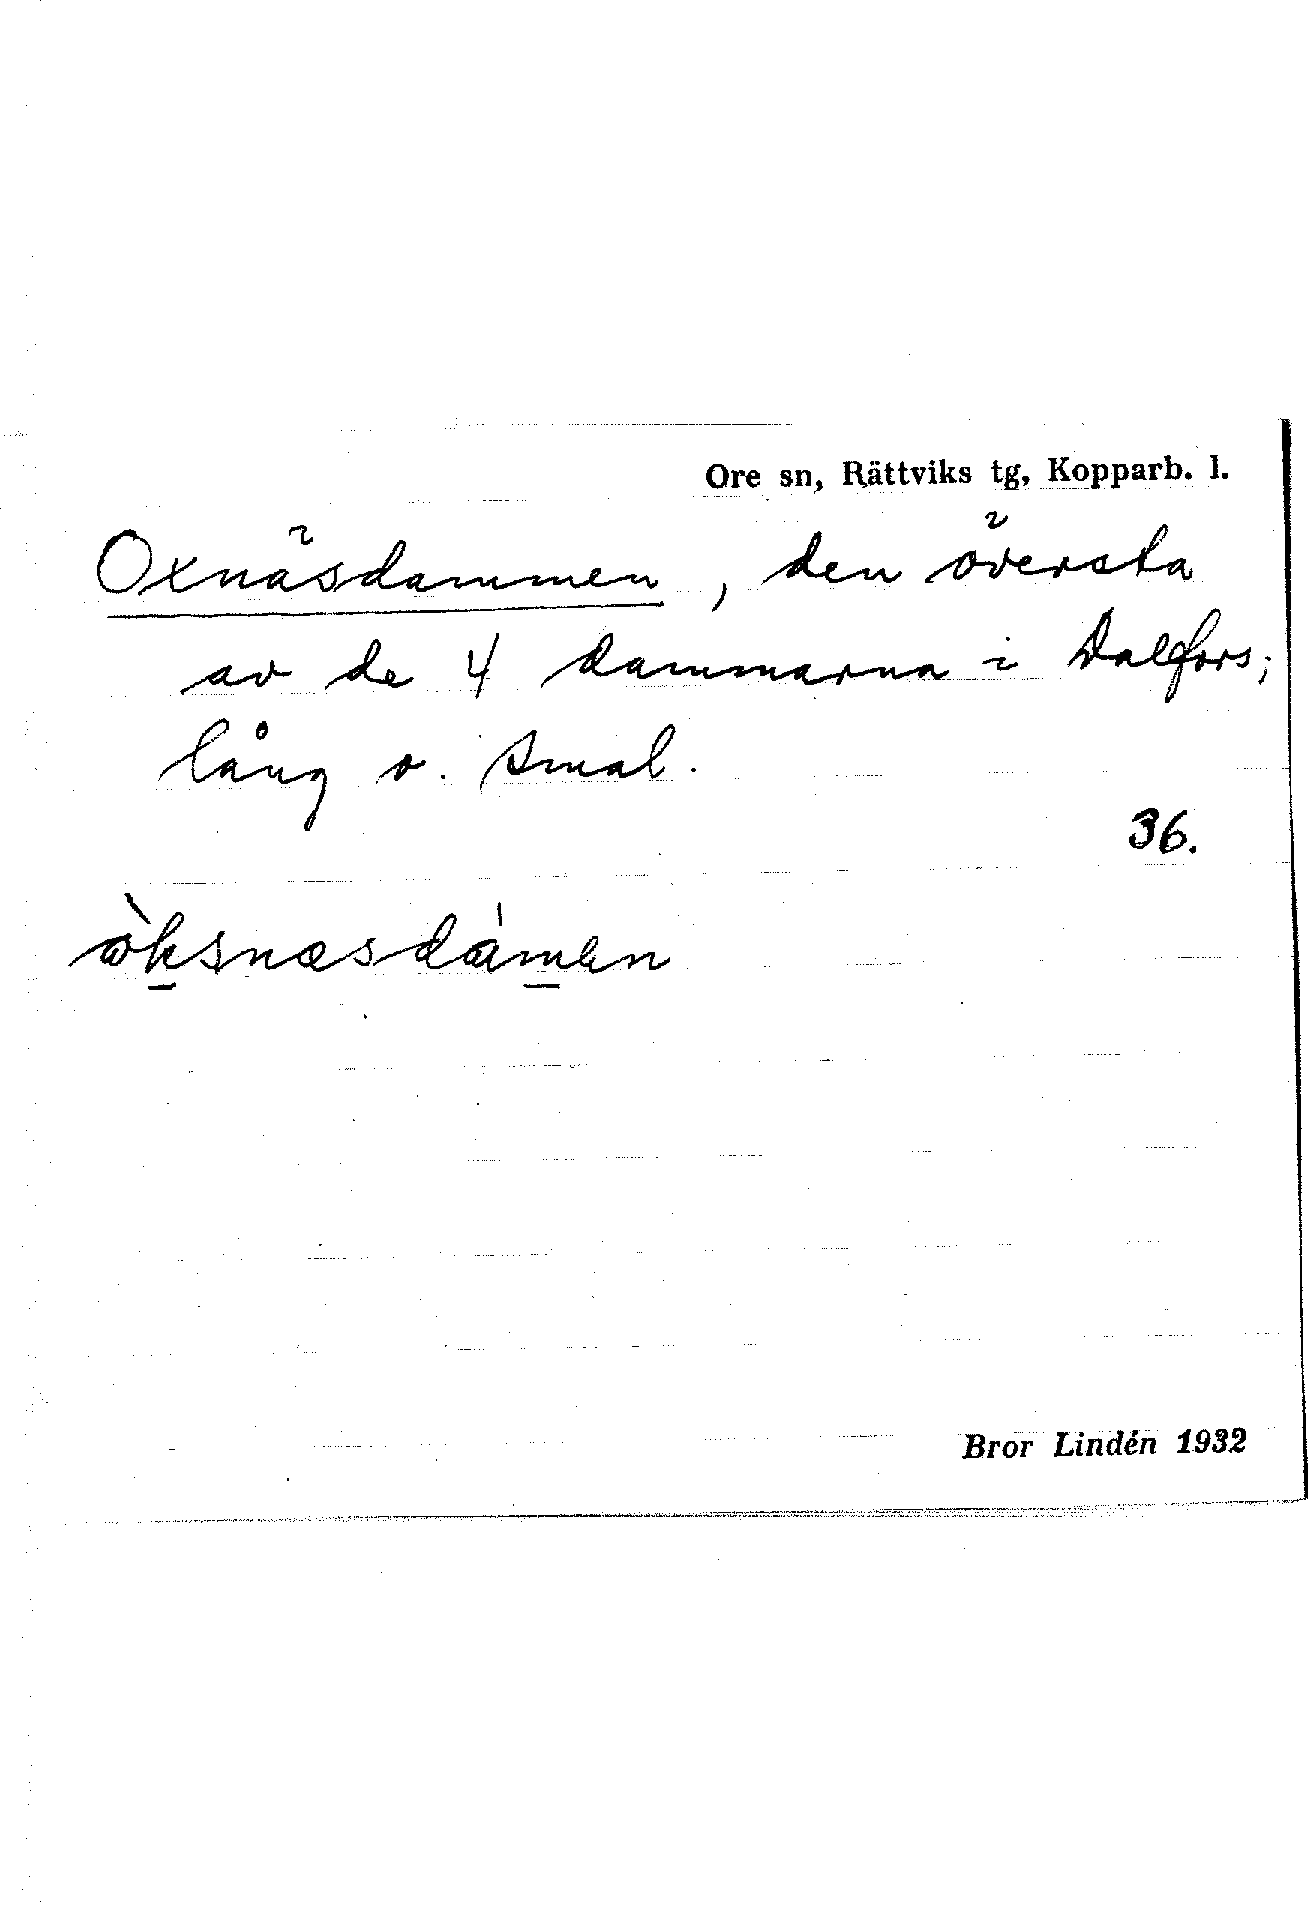 Ore sn, Rättviks tg, Kopparb. l.
Oxnäsdammen, den översta
av de 4 dammarna i Dalfors;
lång o. smal.
36.
Bror Lindén 1932